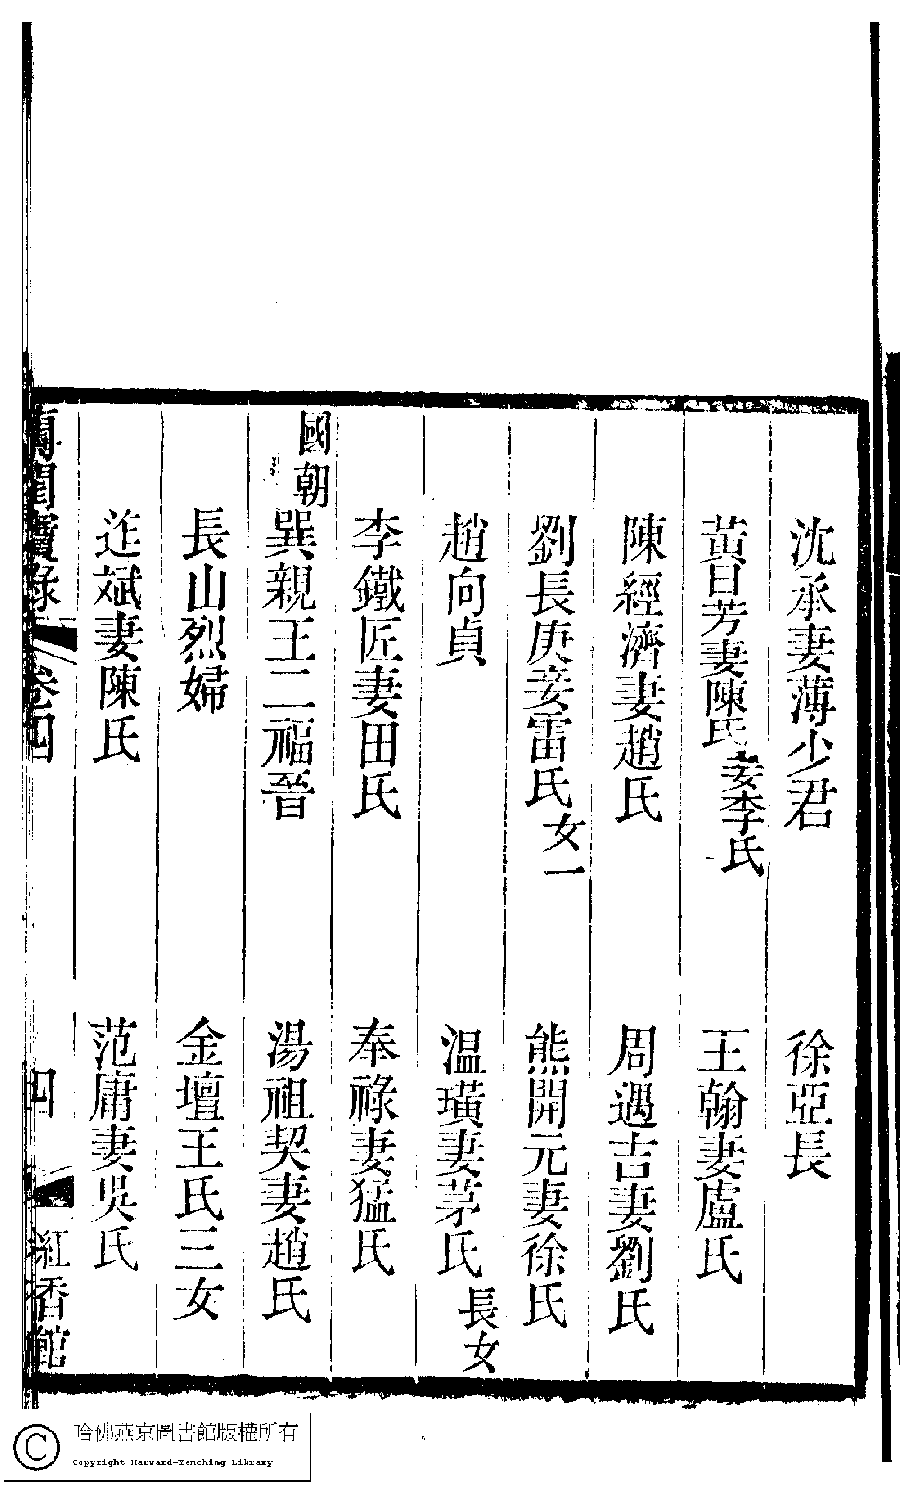 沈承妻薄少君　徐亞長
黃日芳妻陳氏妾李氏　王翰妻盧氏
陳經濟妻趙氏　周遇吉妻劉氏
劉長庚妾雷氏女一　熊開元妻徐氏
趙向貞　温璜妻茅氏長女
李鐵匠妻田氏　奉祿妻猛氏
國朝
巽親王二福晉　湯祖契妻趙氏
長山烈婦　金壇王氏三女
迮斌妻陳氏　范庸妻吳氏
閨寶錄　卷四　四　紅香館
哈佛燕京圖書館版權所有
Copyright Harvard-Yenching Library